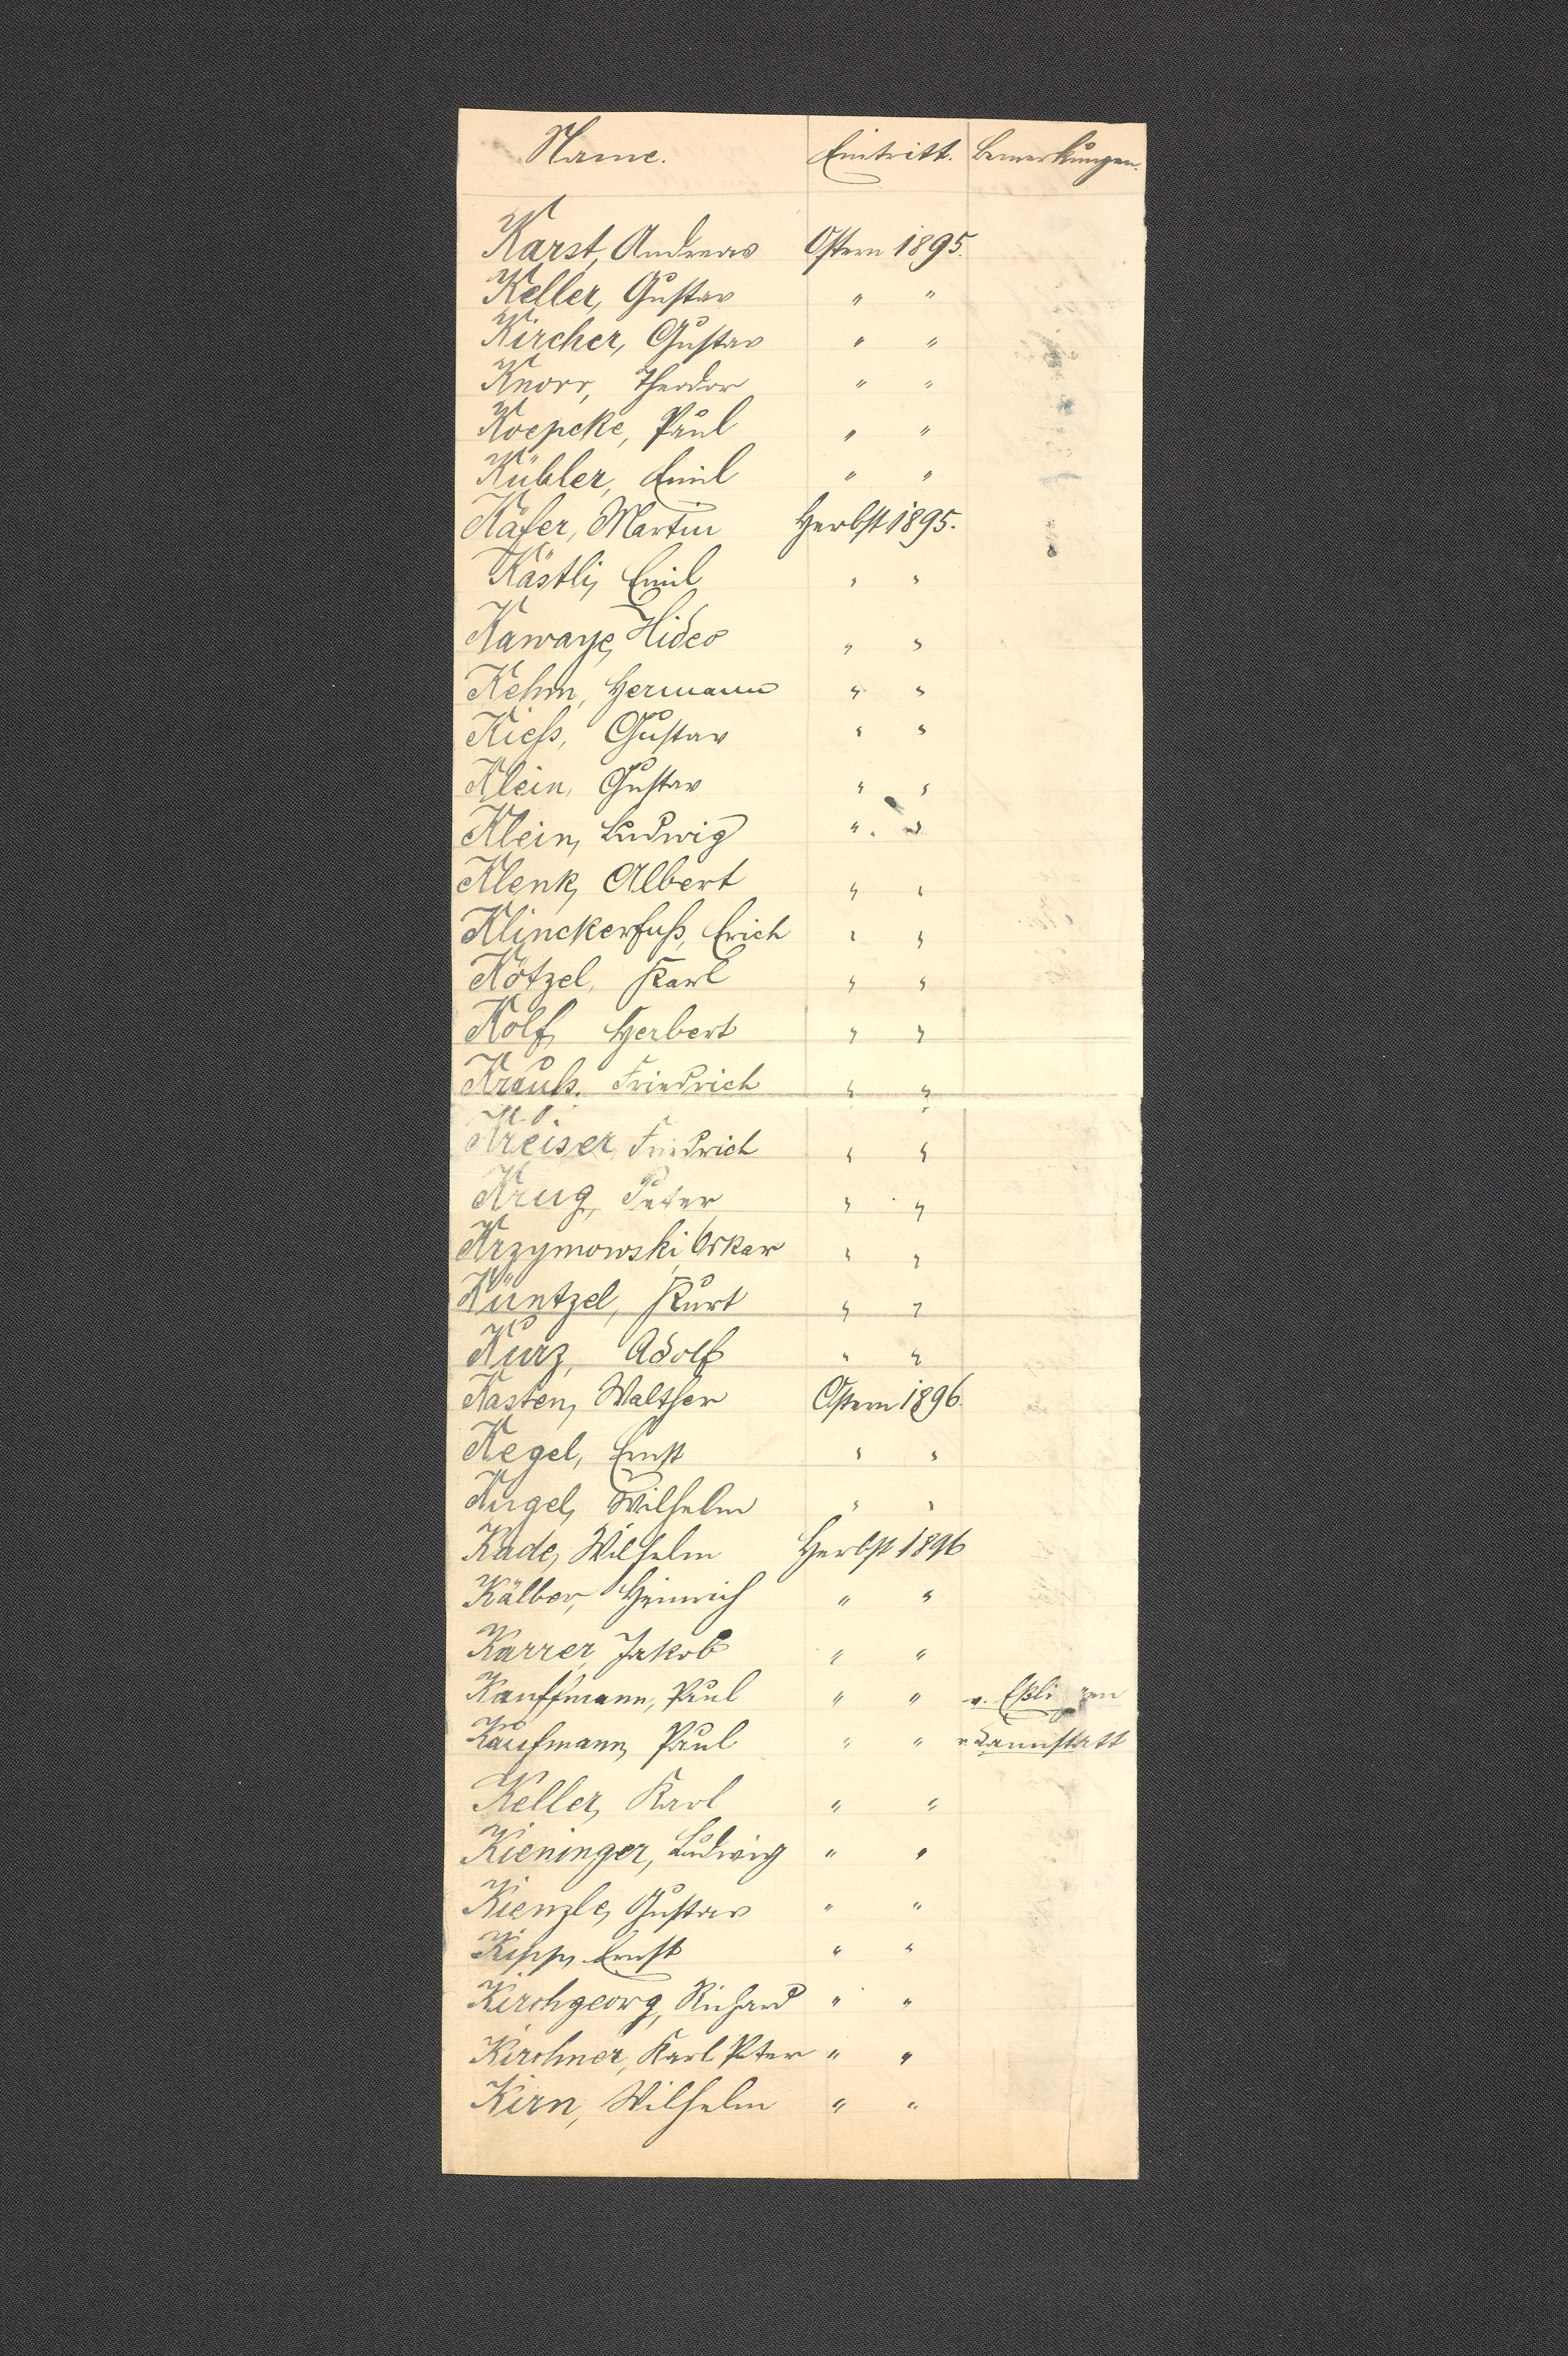 Name. Eintritt. Bemerkungen.
Karst, Andreas Ostern 1895.
Keller, Gustav " "
Kircher, Gustav " "
Knorr, Theodor " "
Koepcke, Paul " "
Kübler, Emil " "
Käfer, Martin Herbst 1895.
Kästli, Emil " "
Kawaye, Hideo " "
Kehm, Hermann " "
Kieß, Gustav " "
Klein, Gustav " "
Klein, Ludwig " "
Klenk, Albert " "
Klinckerfuß, Erich " "
Kötzel, Karl " "
Kolf, Herbert " "
Krauß, Friedrich " "
Kreiser, Friedrich " "
Krug, Peter " "
Krzymowski, Oskar " "
Küntzel, Kurt " "
Kurz, Adolf " "
Kasten, Walther Ostern 1896.
Kegel, Ernst " "
Kugel, Wilhelm " "
Kade, Wilhelm Herbst 1896
Kälber, Heinrich " "
Karrer, Jakob " "
Kauffmann, Paul " " v. Eßlingen
Kaufmann, Paul " " v. Cannstatt
Keller, Karl " "
Kieninger, Ludwig " "
Kienzle, Gustav " "
Kipp, Ernst " "
Kirchgeorg, Richard " "
Kirchner, Karl Peter " "
Kirn, Wilhelm " "